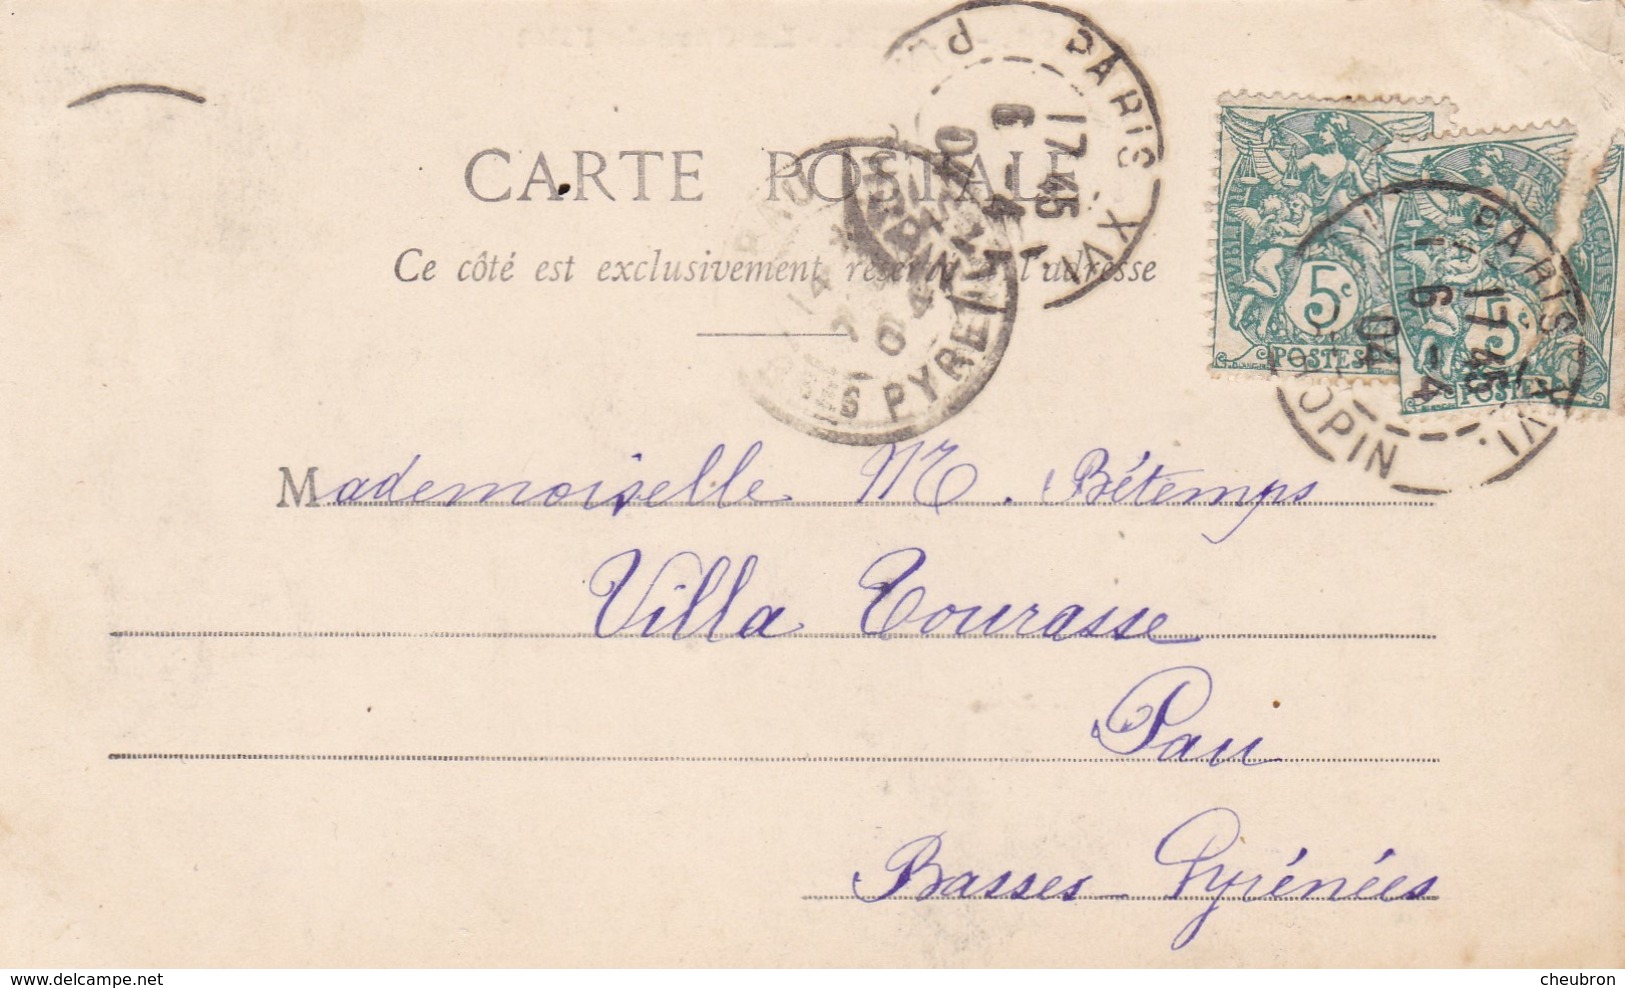 CARTE POSTALE
Ce côté est exclusivement réservé à l'adresse
PARIS XVI
17 45
6 - 4
04
5c
POSTES
5c
POSTES
PARIS XVI
17 45
6 - 4
04
CHOPIN
PAU
BSES PYRENEES
Mademoiselle M. Bétemps
Villa Tourasse
Pau
Basses-Pyrénées
https://www.delcampe.net
cheubron